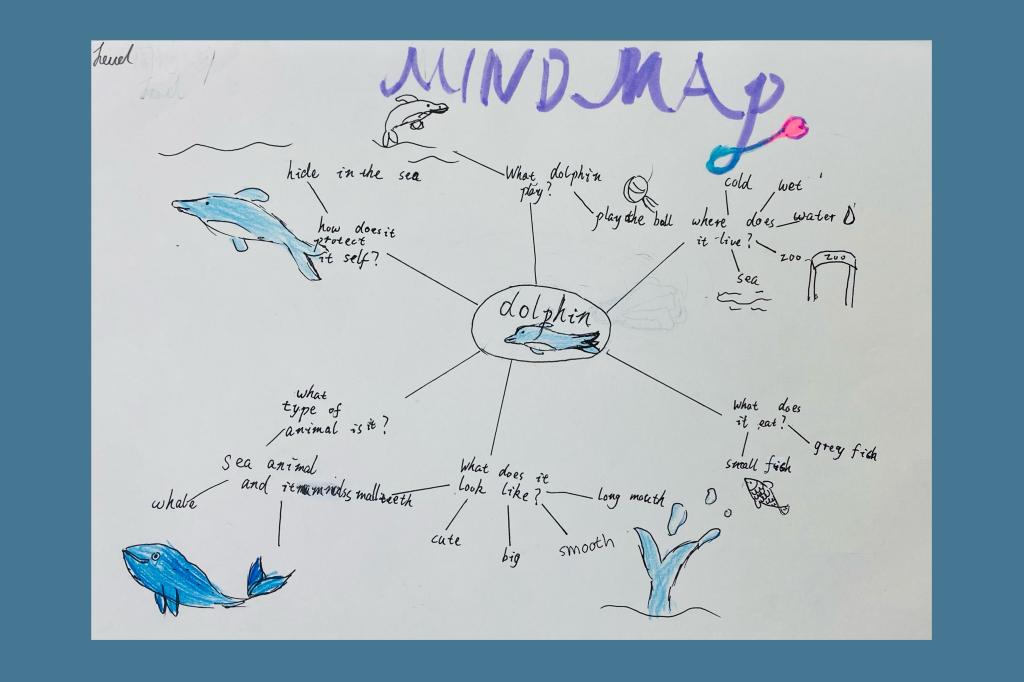 MIND MAP
hide in the sea
how does it
protect
it self?
What dolphin
play?
play the ball
cold
wet
where does
it live?
water
zoo
ZOO
sea
dolphin
what
type of
animal is it?
Sea animal
and it
whale
What does it
look like?
small teeth
cute
big
smooth
long mouth
What does
it eat?
small fish
grey fish